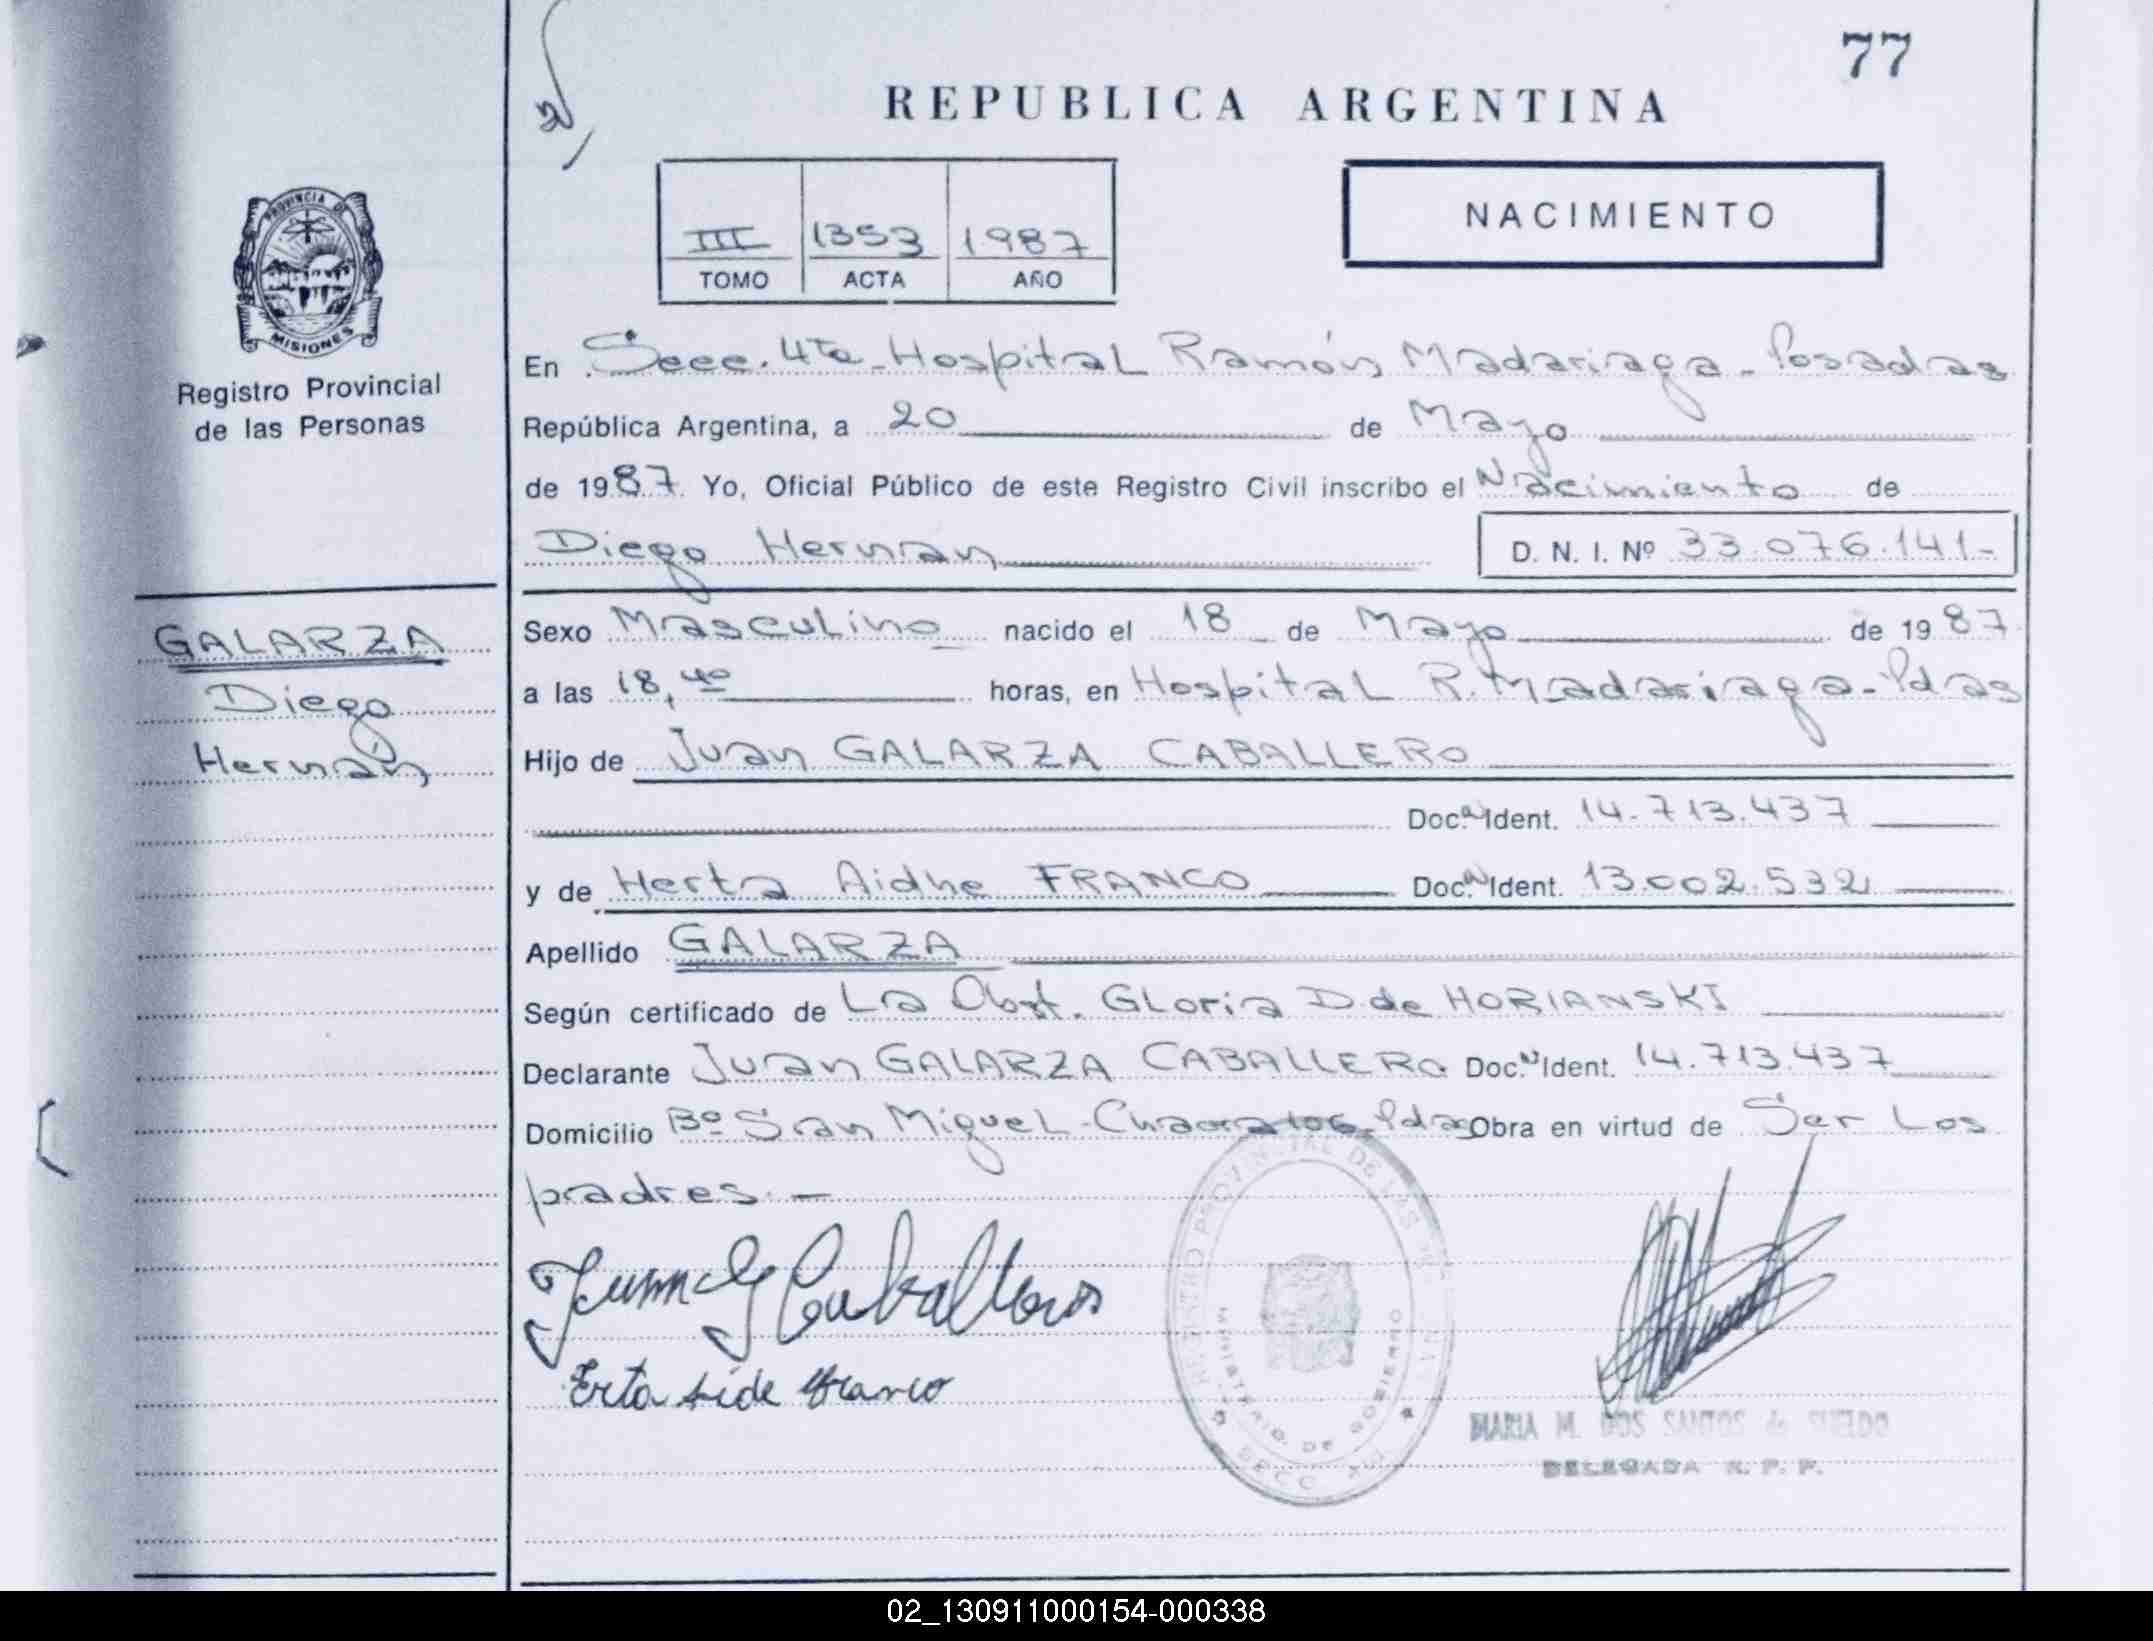 77
REPUBLICA ARGENTINA
PROVINCIA DE
MISIONES
Registro Provincial
de las Personas
III 1353 1987
TOMO ACTA AÑO
NACIMIENTO
En Secc. 4ta - Hospital Ramón Madariaga - Posadas
República Argentina, a 20 de Mayo
de 1987. Yo, Oficial Público de este Registro Civil inscribo el Nacimiento de
Diego Hernan D. N. I. Nº 33.076.141-
GALARZA
Diego
Hernán
Sexo Masculino nacido el 18 de Mayo de 1987
a las 18,40 horas, en Hospital R. Madariaga - Pdas
Hijo de Juan GALARZA CABALLERO
Doc. Ident. 14.713.437
y de Herta Aidhe FRANCO Doc. Ident. 13.002.532
Apellido GALARZA
Según certificado de La Obst. Gloria D. de HORIANSKI
Declarante Juan GALARZA CABALLERO Doc. Ident. 14.713.437
Domicilio Bº San Miguel - Pdas Obra en virtud de Ser Los
padres. -
Juan G Caballero
Erta Aide Franco
REGISTRO PROVINCIAL DE LAS
MINISTERIO DE GOBIERNO
SECC
MARIA M. DOS SANTOS de
DELEGADA R. P. P.
02_130911000154-000338